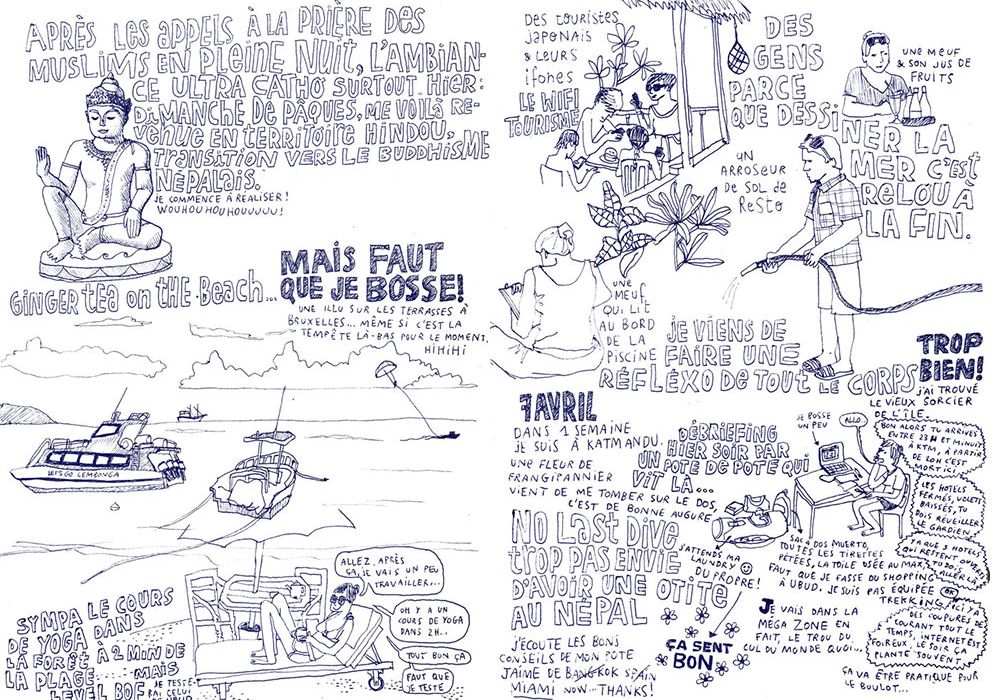 APRÈS LES APPELS À LA PRIÈRE DES
MUSLIMS EN PLEINE NUIT, L'AMBIAN-
CE ULTRA CATHO SURTOUT. HIER:
DIMANCHE DE PÂQUES, ME VOILÀ RE-
VENUE EN TERRITOIRE HINDOU,
TRANSITION VERS LE BUDDHISME
NÉPALAIS.
JE COMMENCE À REALISER!
WOUHOUHOUHOUUUUU!
GINGER TEA ON THE BEACH...
MAIS FAUT
QUE JE BOSSE!
UNE ILLU SUR LES TERRASSES À
BRUXELLES... MÊME SI C'EST LA
TEMPÊTE LÀ-BAS POUR LE MOMENT.
HIHIHI
LET'S GO LEMBONGA
SYMPA LE COURS
DE YOGA DANS
LA FORÊT À 2 MIN DE
LA PLAGE MAIS
LEVEL BOF
JE TESTE-
RAI CELUI
ALLEZ, APRÈS
ÇA, JE VAIS UN PEU
TRAVAILLER...
OH Y A UN
COURS DE YOGA
DANS 2H...
TOUT BON ÇA
FAUT QUE
JE TESTE
DES TOURISTES
JAPONAIS
& LEURS
IFONES
LE WIFI
TOURISME
DES
GENS
PARCE
QUE DESSINER LA
MER C'EST
RELOU À
LA FIN.
UNE MEUF
& SON JUS DE
FRUITS
UN
ARROSEUR
DE SOL DE
RESTO
UNE
MEUF
QUI LIT
AU BORD
DE LA
PISCINE
JE VIENS DE
FAIRE UNE
RÉFLÉXO DE TOUT LE CORPS
TROP
BIEN!
J'AI TROUVÉ
LE VIEUX SORCIER
DE L'ÎLE.
7 AVRIL
DANS 1 SEMAINE
JE SUIS À KATMANDU.
UNE FLEUR DE
FRANGIPANNIER
VIENT DE ME TOMBER SUR LE DOS,
C'EST DE BONNE AUGURE
NO LAST DIVE
TROP PAS ENVIE
D'AVOIR UNE OTITE
AU NÉPAL
J'ÉCOUTE LES BONS
CONSEILS DE MON POTE
JAIME DE BANGKOK SPAIN
MIAMI NOW... THANKS!
DÉBRIEFING
HIER SOIR PAR
UN POTE DE POTE QUI
VIT LÀ...
JE BOSSE
UN PEU
ALLO
BON ALORS TU ARRIVES
ENTRE 23H ET MINUIT
À KTM, À PARTIR
DE 20H C'EST
MORT ICI!
LES HOTELS
FERMÉS, VOLETS
BAISSÉS, TU
DOIS RÉVEILLER
LE GARDIEN.
Y A QUE 3 HOTELS
QUI RESTENT OUVERTS
J'ATTENDS MA
LAUNDRY
DU PROPRE!
ÇA SENT
BON
SAC À DOS MUERTO,
TOUTES LES TIRETTES
PÉTÉES, LA TOILE USÉE AU MAX,
FAUT QUE JE FASSE DU SHOPPING
À UBUD. JE SUIS PAS ÉQUIPÉE
TREKKING ICI
JE VAIS DANS LA
MÉGA ZONE EN
FAIT, LE TROU DU
CUL DU MONDE QUOI...
DES COUPURES DE
COURANT TOUT LE
TEMPS, INTERNET EST
FOIREUX, LE SOIR ÇA
PLANTE SOUVENT.
ÇA VA ÊTRE PRATIQUE POUR
LE BOULOT...